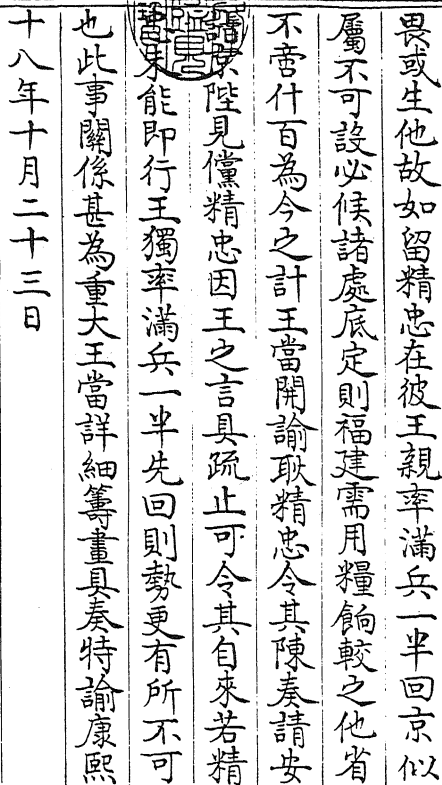 畏或生他故如留精忠在彼王親率滿兵一半回京似
屬不可設必候諸處底定則福建需用糧餉較之他省
不啻什百為今之計王當開諭耿精忠令其陳奏請安
京陛見儻精忠因王之言具疏止可令其自來若精
未能即行王獨率滿兵一半先回則勢更有所不可
也此事關係甚為重大王當詳細籌畫具奏特諭康熙
十八年十月二十三日